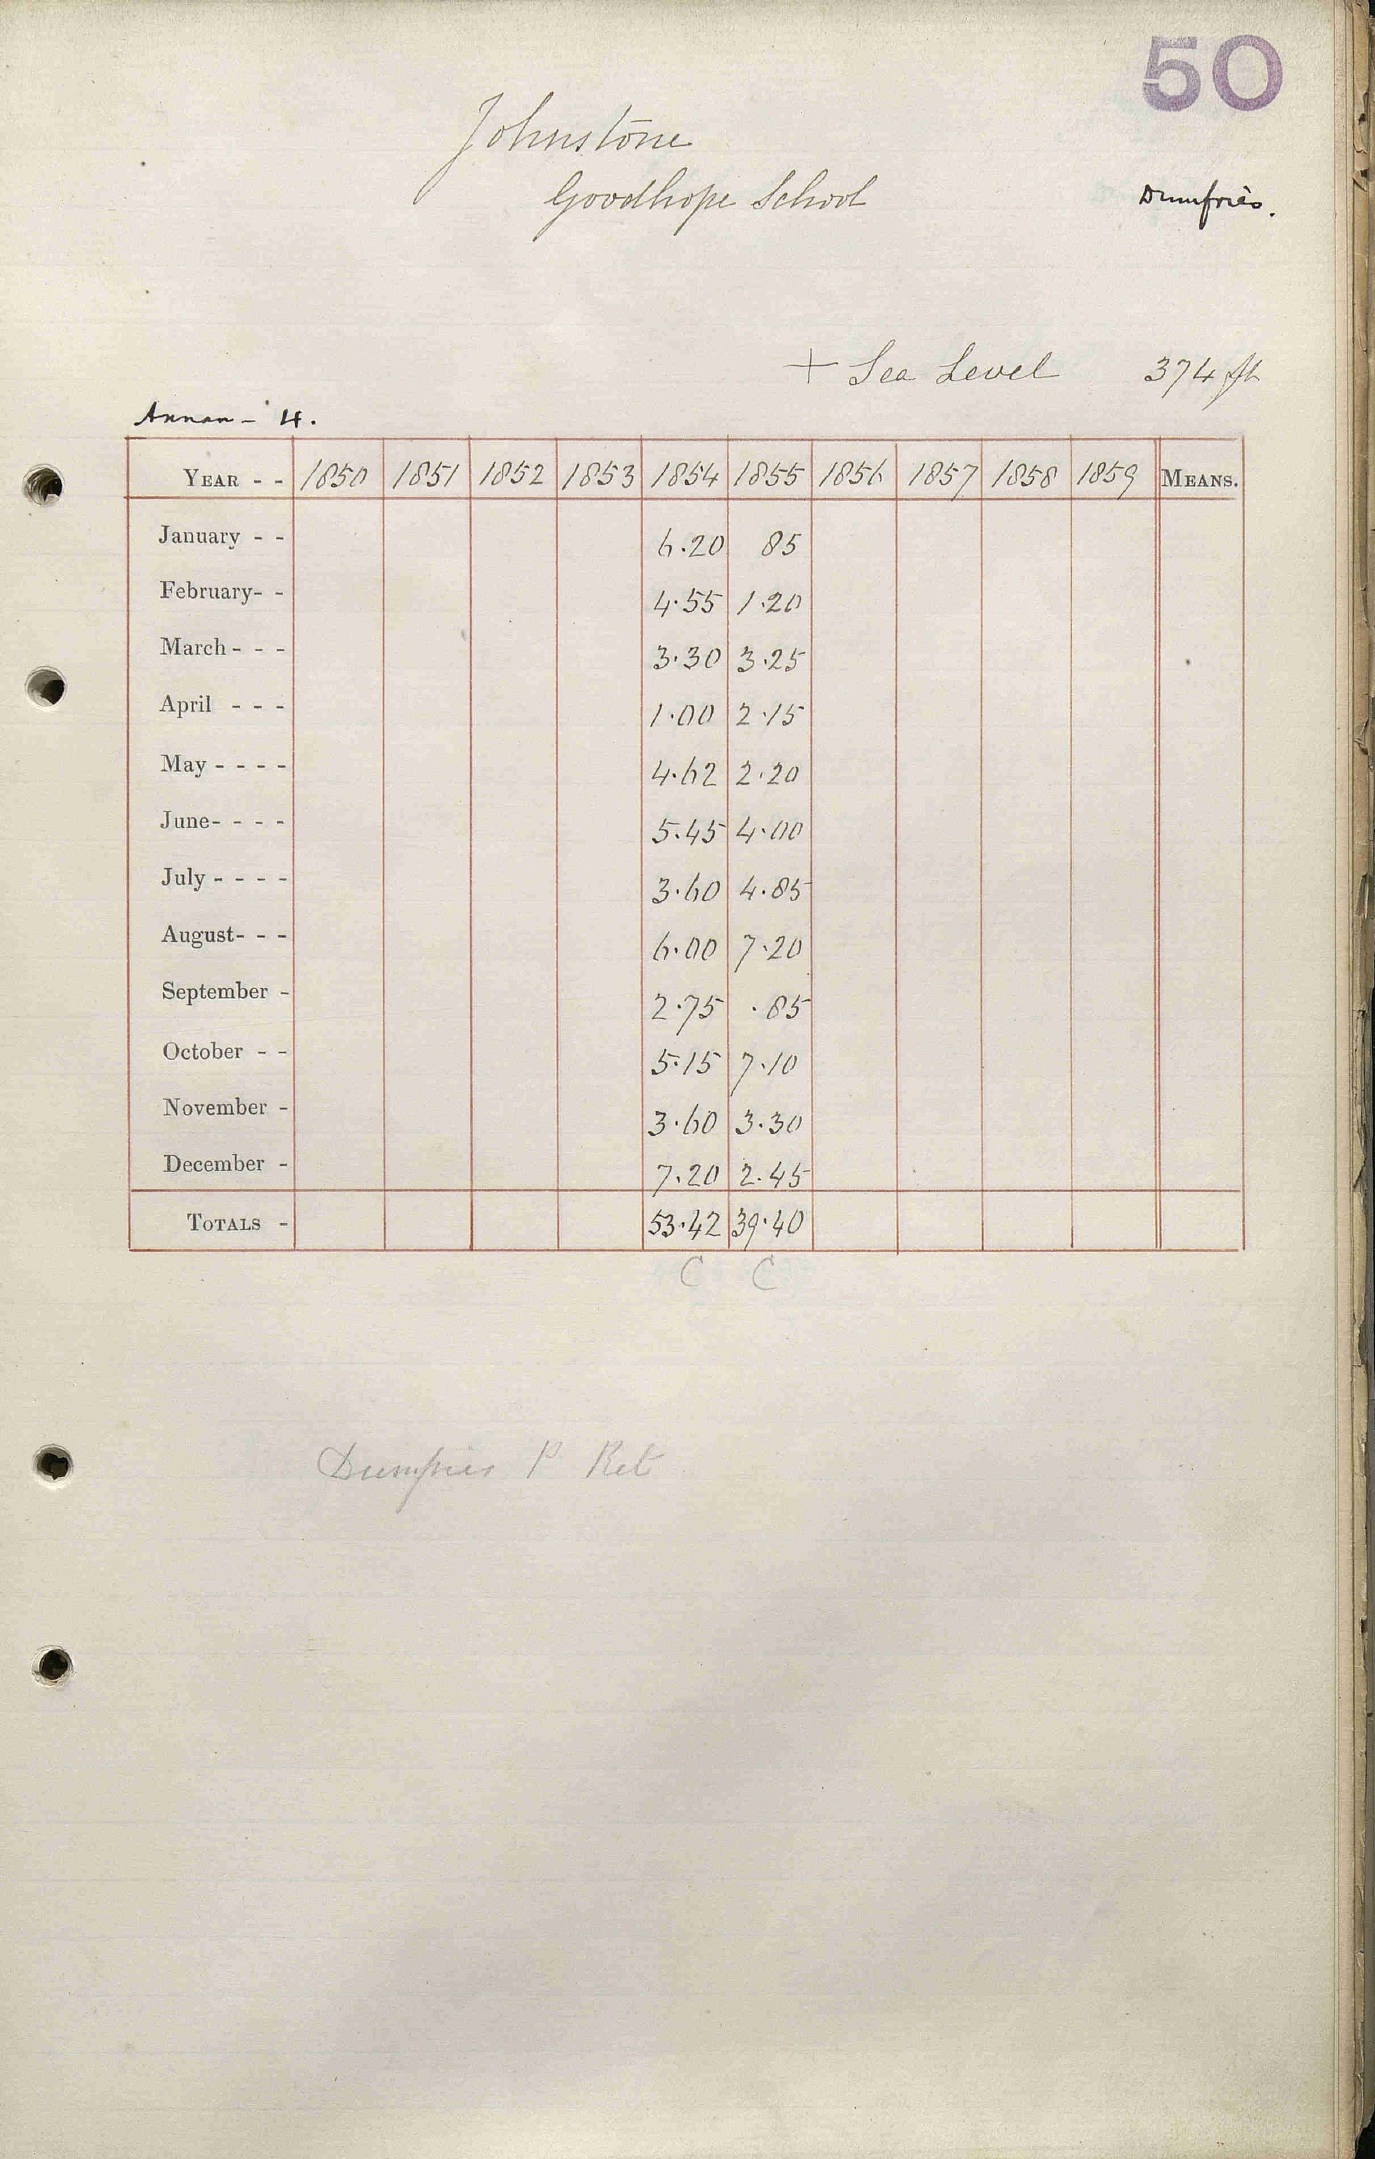 50
Johnstone
Goodhope School
Dumfries.
+ Sea Level 374 ft
Annan - 4.
YEAR - - 1850 1851 1852 1853 1854 1855 1856 1857 1858 1859 MEANS.
January - - 6.20 85
February- - 4.55 1.20
March - - - 3.30 3.25
April - - - 1.00 2.15
May - - - - 4.62 2.20
June- - - - 5.45 4.00
July - - - - 3.60 4.85
August- - - 6.00 7.20
September - 2.75 .85
October - - 5.15 7.10
November - 3.60 3.30
December - 7.20 2.45
TOTALS - 53.42 39.40
C C
Dumfries P Ret